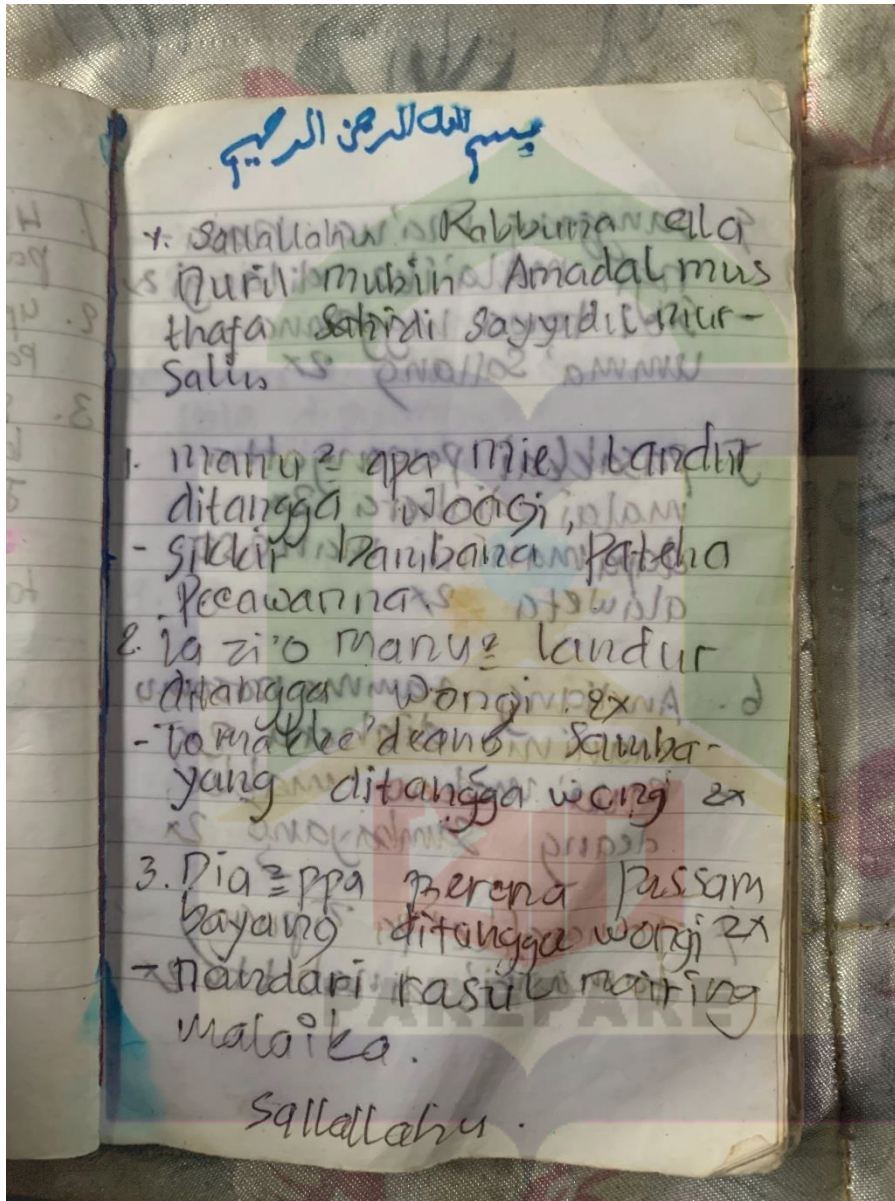 بسم الله الرحمن الرحيم
Y. Sallallahu Rabbuna ala
Nuril mubin Amadal mus
thafa Sahidi Sayyidil mur-
Salin
1. manu² apa mie landur
ditangga wongi,
- Sikkir bambana Pateha
Pecawanna.
2. Ia zi'o manu² landur
ditangga wongi. 2x
- to makke'deang Samba-
yang ditangga wongi 2x
3. Dia²ppa merena passam
bayang ditangga wongi 2x
- nandari rasul nairing
malaika.
Sallallahu.
PAREPARE